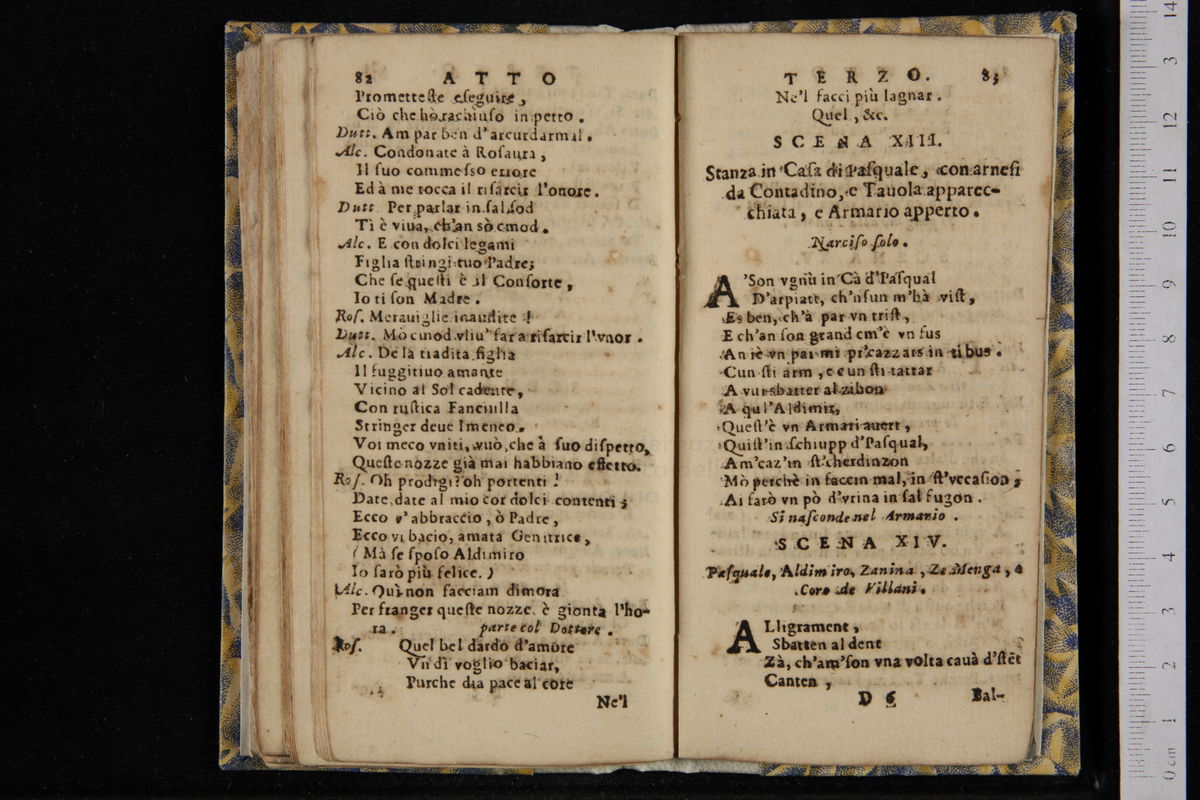 82 ATTO
Prometteste eseguire,
Ciò che hò rachiuso in petto.
Dutt. Am par ben d'arcurdarmal.
Alc. Condonate à Rosaura,
Il suo commesso errore
Ed à me tocca il risarcir l'onore.
Dutt. Per parlar in sal sod
Tì è viua, ch'an sò cmod.
Alc. E con dolci legami
Figlia stringi tuo Padre;
Che se questi è il Consorte,
Io ti son Madre.
Ros. Merauiglie inaudite!
Dutt. Mò cmod vliu' far a risarcir l'vnor.
Alc. De la tradita figlia
Il fuggitiuo amante
Vicino al Sol cadente,
Con rustica Fanciulla
Stringer deue Imeneo.
Voi meco vniti, vuò, che à suo dispetto,
Queste nozze già mai habbiano effetto.
Ros. Oh prodigi? oh portenti!
Date, date al mio cor dolci contenti;
Ecco v'abbraccio, ò Padre,
Ecco vi bacio, amata Genitrice,
(Mà se sposo Aldimiro
Io sarò più felice.)
Alc. Quì non facciam dimora
Per franger queste nozze è gionta l'ho-
ra. parte col Dottore.
Ros. Quel bel dardo d'amore
Vn dì voglio baciar,
Purche dia pace al core
Ne'l
TERZO. 83
Ne'l facci più lagnar.
Quel, &c.
SCENA XIII.
Stanza in Casa di Pasquale, con arnesi
da Contadino, e Tauola apparec-
chiata, e Armario apperto.
Narciso solo.
A'Son vgnù in Cà d'Pasqual
D'arpiatt, ch'nsun m'hà vist,
Es ben, ch'à par vn trist,
E ch'an son grand cm'è vn fus
An iè vn par mi pr'cazzars in ti bus.
Cun sti arm, e cun sti tattar
A vui sbatter al zibon
A qu l'Aldimir,
Quest'è vn Armari auert,
Quist'in schiupp d'Pasqual,
Am'caz'in st'cherdinzon
Mò perchè in facem mal, in st'vccasion,
Ai farò vn pò d'vrina in sal fugon.
Si nasconde nel Armario.
SCENA XIV.
Pasquale, Aldimiro, Zanina, Ze Menga, e
Coro de Villani.
ALligrament,
Sbatten al dent
Zà, ch'am'son vna volta cauà d'stět
Canten,
D 6 Bal-